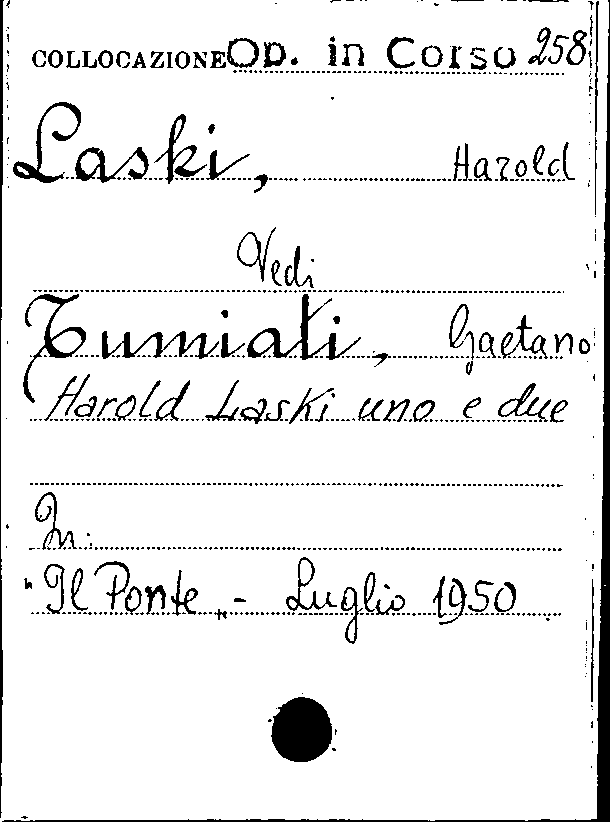 COLLOCAZIONE Op. in Corso 258
Laski, Harold
Vedi
Tumiati, Gaetano
Harold Laski uno e due
In:
"Il Ponte„ - Luglio 1950